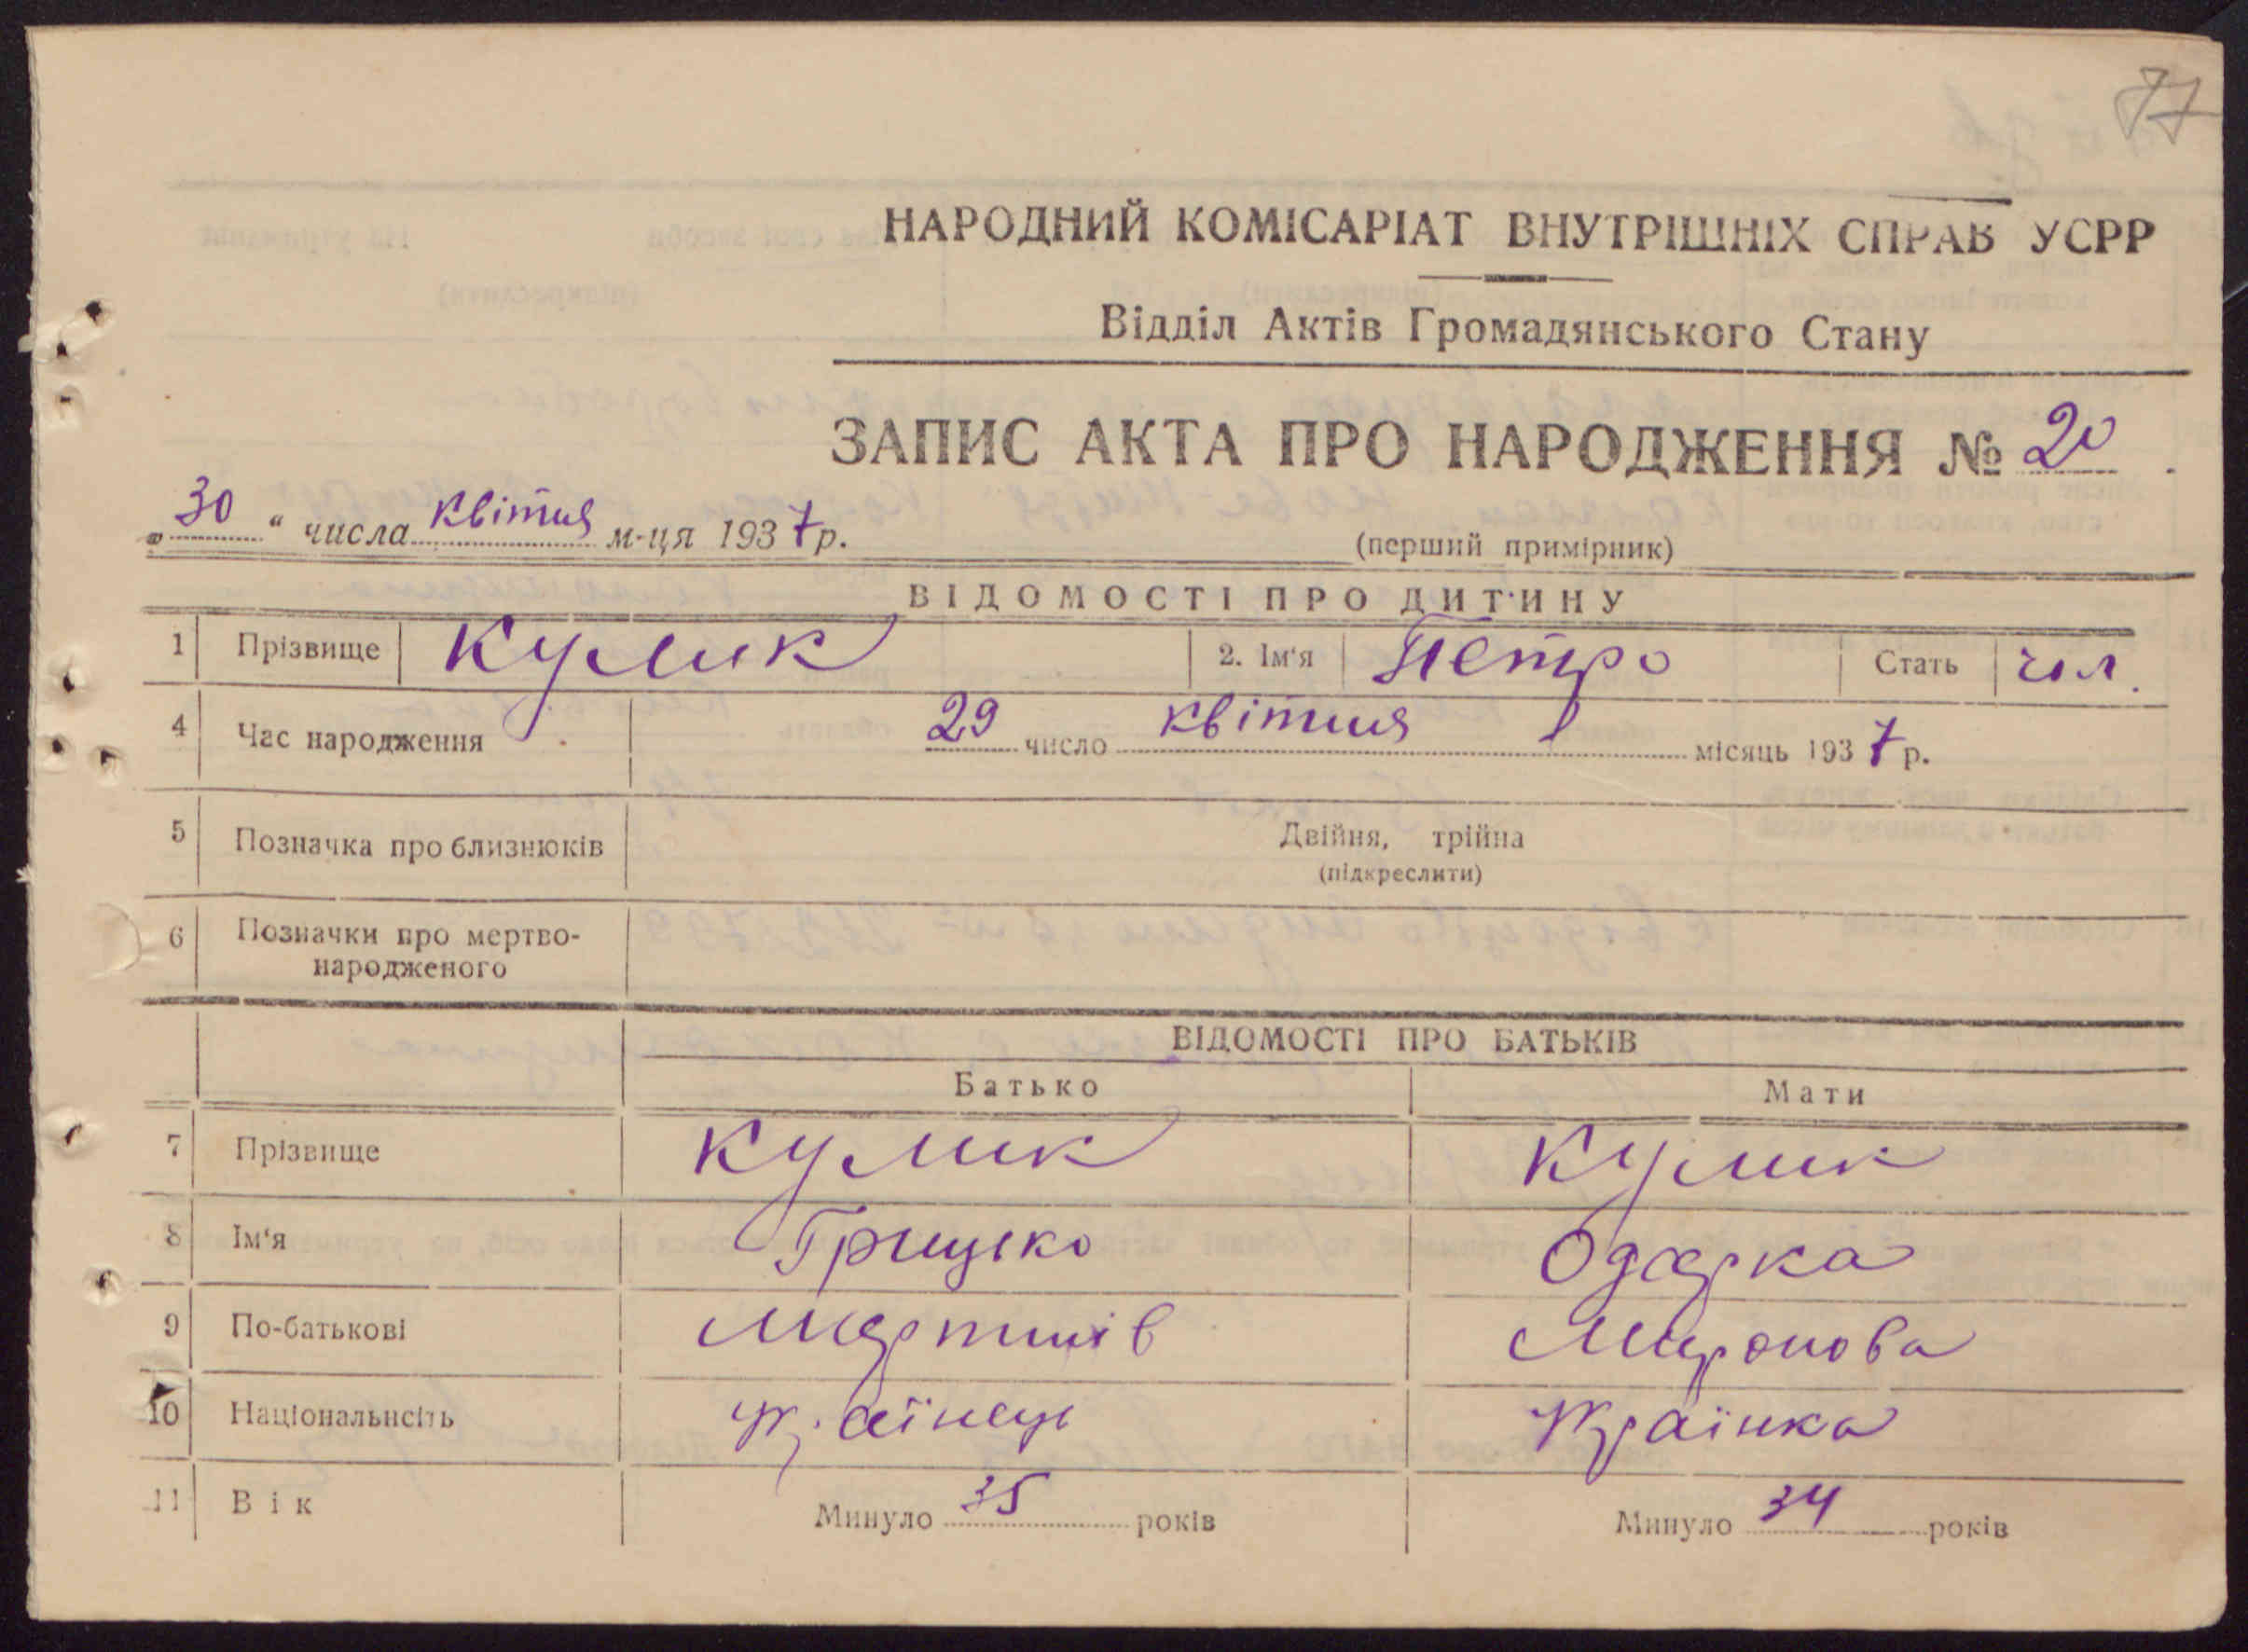 77
НАРОДНИЙ КОМІСАРІАТ ВНУТРІШНІХ СПРАВ УСРР
Відділ Актів Громадянського Стану
ЗАПИС АКТА ПРО НАРОДЖЕННЯ № 20
„30“ числа квітня м-ця 1937 р.
(перший примірник)
ВІДОМОСТІ ПРО ДИТИНУ
1 Прізвище Кулик 2. Ім'я Петро Стать чол.
4 Час народження 29 число квітня місяць 1937 р.
5 Позначка про близнюків Двійня, трійна
(підкреслити)
6 Позначки про мертво-
народженого
ВІДОМОСТІ ПРО БАТЬКІВ
Батько Мати
7 Прізвище Кулик Кулик
8 Ім'я Грицько Одарка
9 По-батькові Мартинів Миронова
10 Національнсіть Українець Українка
11 Вік Минуло 35 років Минуло 34 років